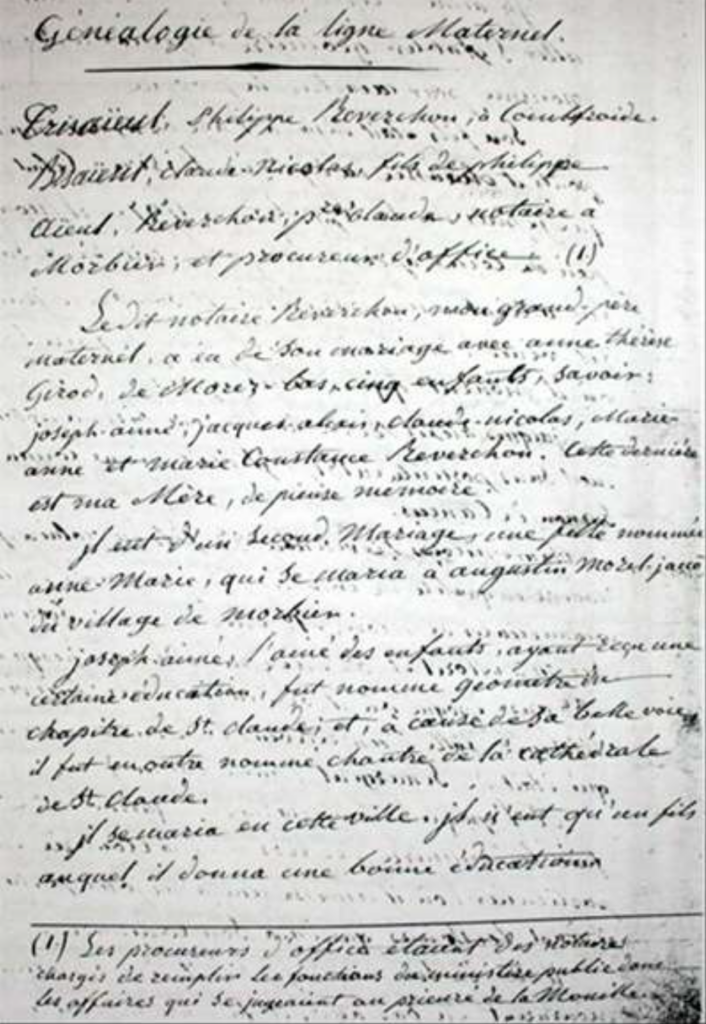 Généalogie de la ligne Maternel.
Trisaïeul, Philippe Reverchon, à Combfroide.
Bisaïeul, claude-Nicolas, fils de philippe
aïeul, Reverchon, pre claude, notaire à
Morbier, et procureur d'office (1)
Ledit notaire Reverchon, mon grand-père
maternel, a eu de son mariage avec anne thérèse
Girod, de Morez-bas, cinq enfants, savoir:
joseph-aimé, jacques-alexis, claude-nicolas, Marie-
anne et marie Constance Reverchon. Cette dernière
est ma Mère, de pieuse memoire.
jl eut d'un second Mariage, une fille nommée
anne Marie, qui se maria à augustin Morel-
du village de morbier.
joseph-aimé, l'ainé des enfants, ayant reçu une
certaine éducation, fut nommé géomètre du
chapitre de St. claude; et, à cause de sa belle voie,
il fut en outre nommé chantre de la cathédrale
de St. Claude.
jl se maria en cette ville. jl n'eut qu'un fils
auquel il donna une bonne éducation
(1) Les procureurs d'office étaient des notaires
chargés de remplir les fonctions du ministère public dans
les affaires qui se jugeaient au prieuré de la Mouille.